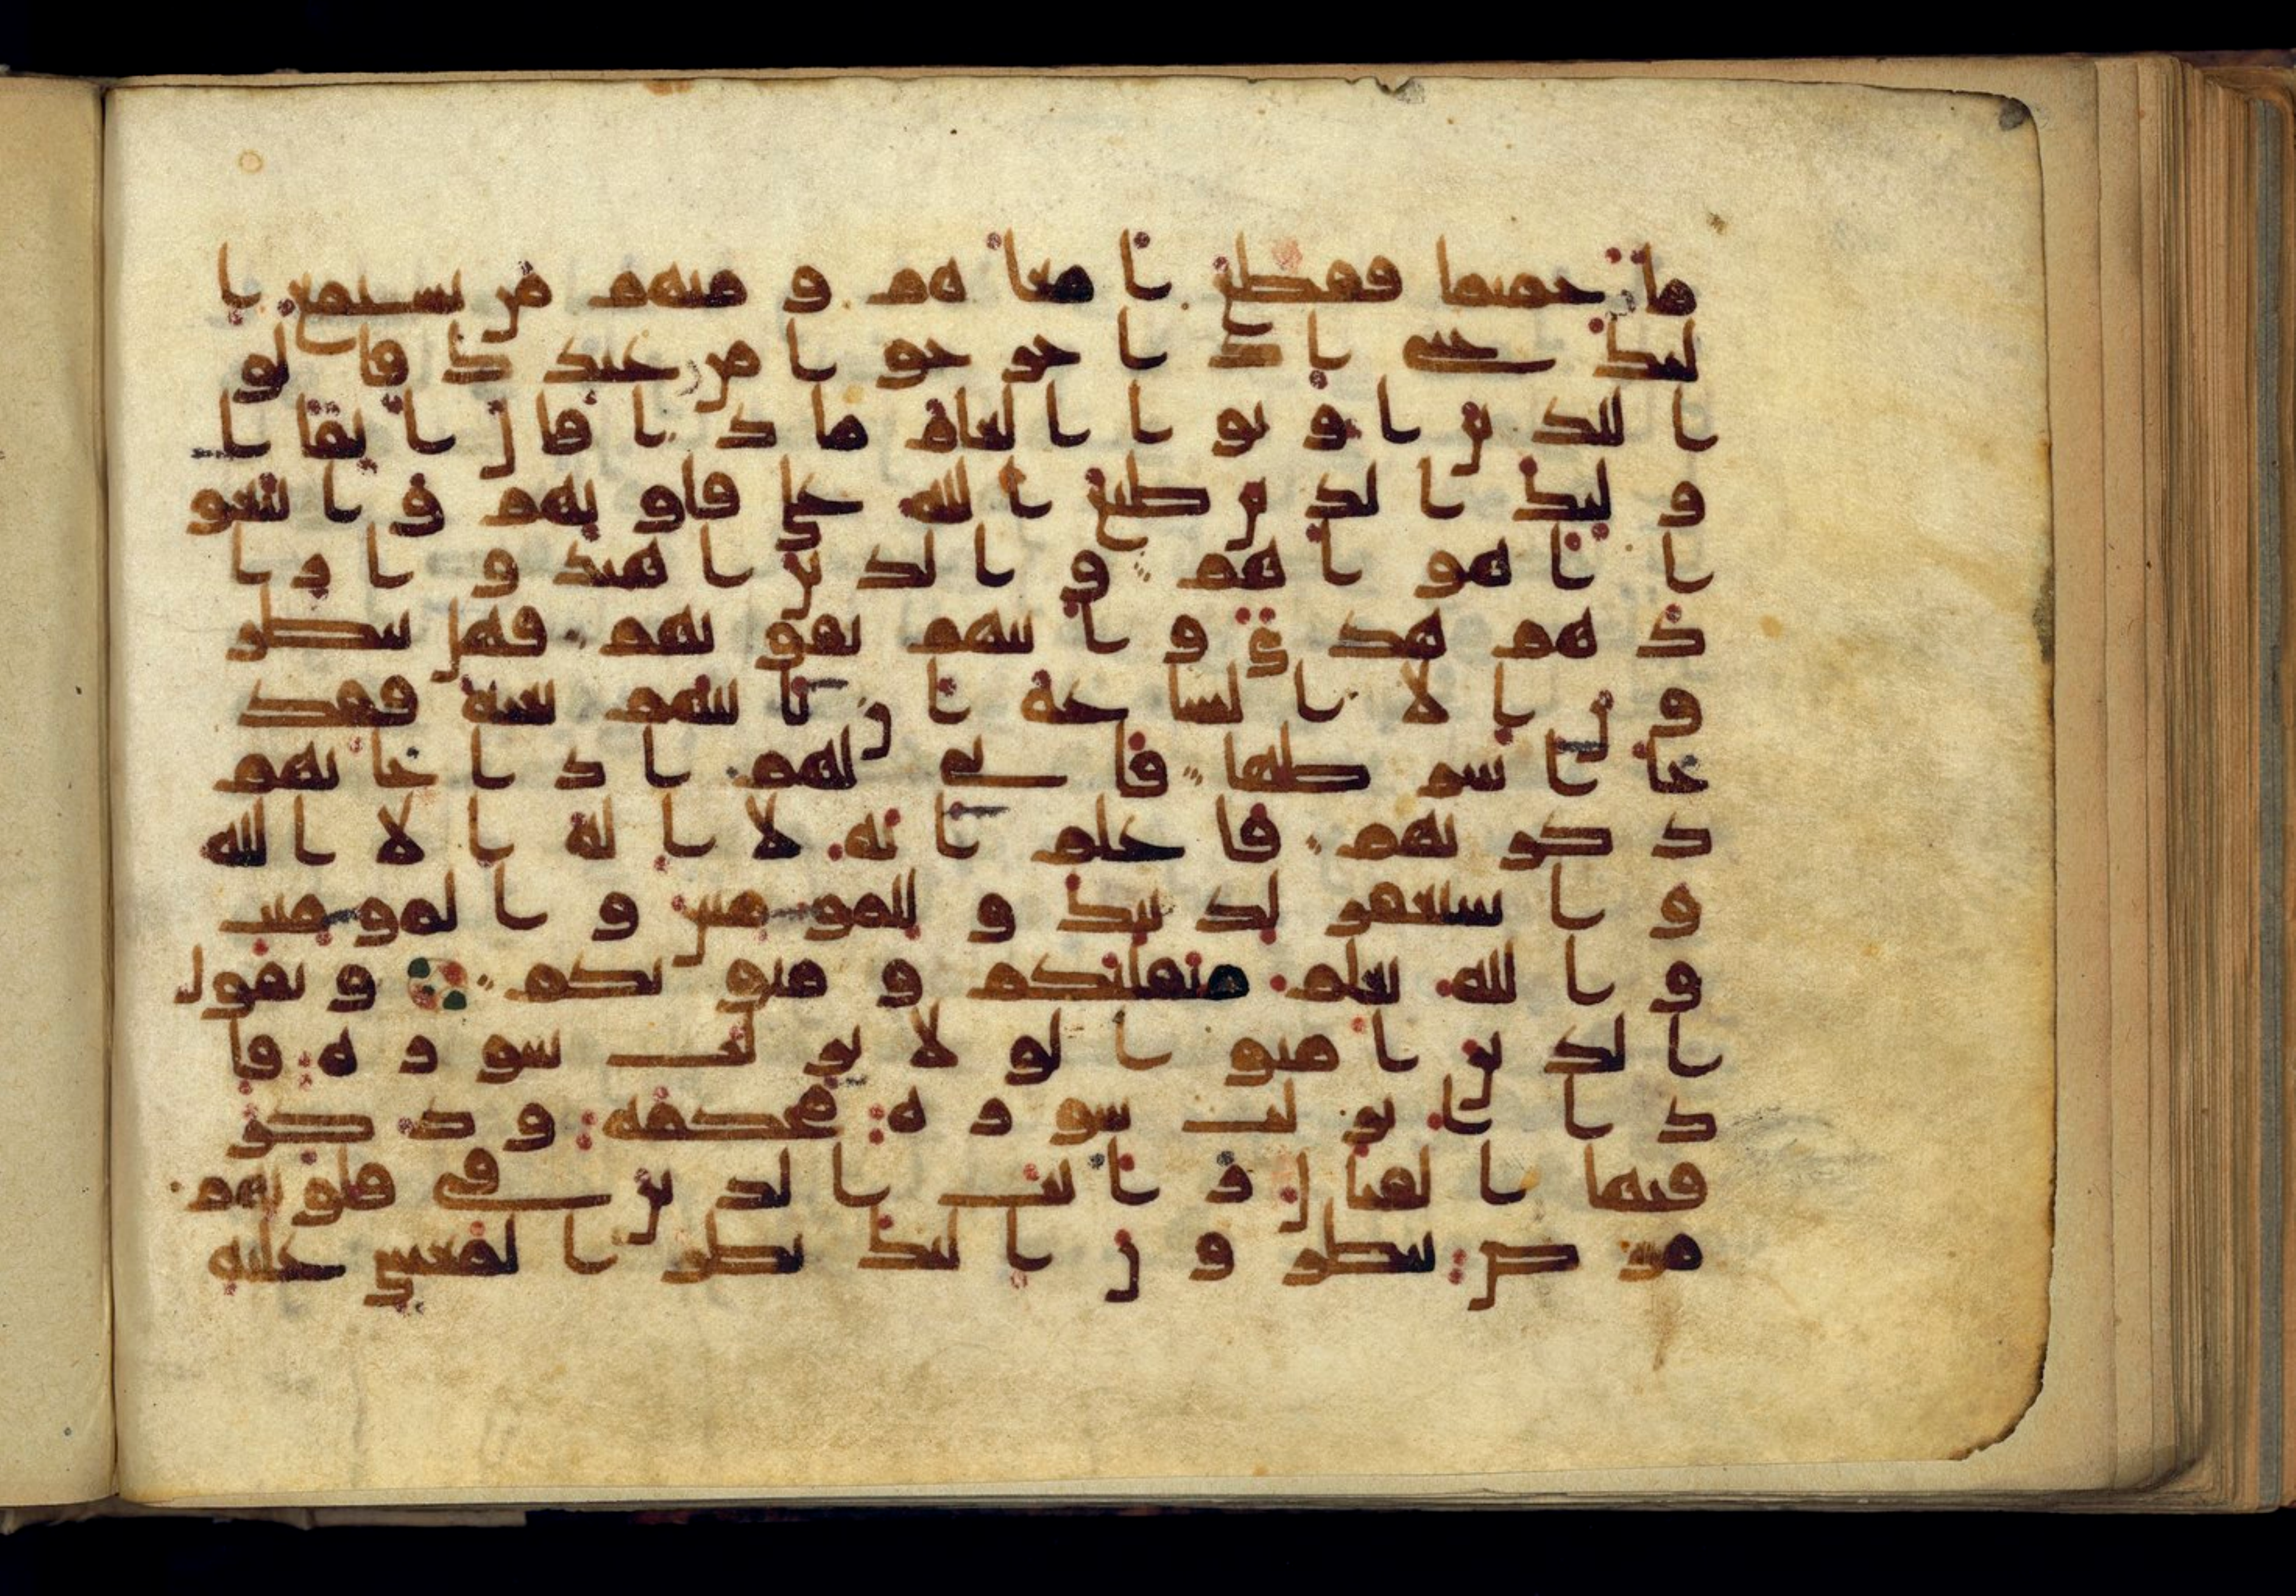 ما حميما فقطع ا معا هم و منهم من يستمع ا
ليك حتى ا ذ ا خر جو ا من عند ك قا لو
ا للذ ين ا و تو ا ا لعلم ما ذ ا قا ل ا نفا ا
و لئك ا لذ ين طبع ا لله على قلو بهم و ا تبعو
ا ا هو ا هم و ا لذ ين ا هتد و ا ز ا
د هم هد ى و ا تيهم تقو يهم فهل ينظر
و ن ا لا ا لسا عة ا ن تا تيهم بغتة فقد
جا ا شر طها فا نى لهم ا ذ ا جا تهم
ذ كر يهم فا علم ا نه لا ا له ا لا ا لله
و ا ستغفر لذ نبك و للمو منين و ا لمو منت
و ا لله يعلم متقلبكم و مثو يكم و يقول
ا لذ ين ا منو ا لو لا نز لت سو ر ة فا
ذ ا ا نز لت سو ر ة محكمة و ذ كر
فيها ا لقتا ل ر ا يت ا لذ ين في قلو بهم
مر ض ينظر و ن ا ليك نظر ا لمغشي عليه